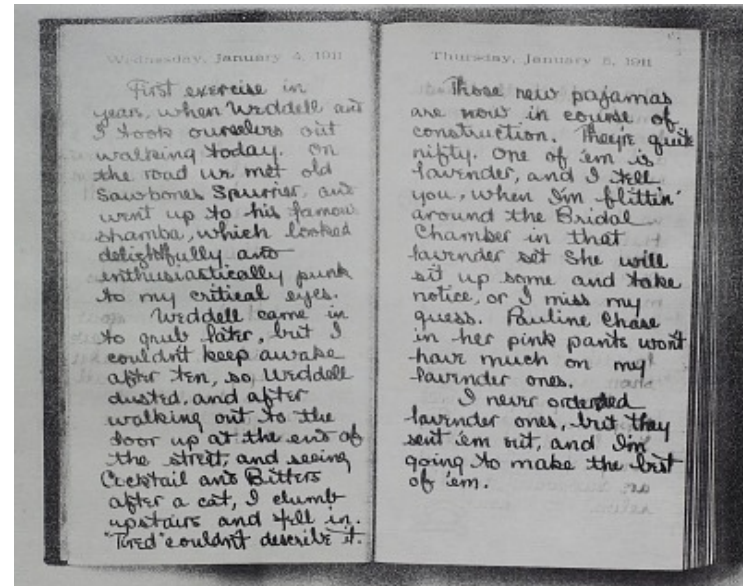 Wednesday, January 4, 1911
First exercise in
years, when Weddell and
I took ourselves out
walking today. On
the road we met old
Sawbones Spurrier, and
went up to his famous
shamba, which looked
delightfully and
enthusiastically punk
to my critical eyes.
Weddell came in
to grub later, but I
couldn't keep awake
after ten, so Weddell
dusted, and after
walking out to the
door up at the end of
the street, and seeing
Cocktail and Bitters
after a cat, I clumb
upstairs and fell in.
"Tired" couldn't describe it.
Thursday, January 5, 1911
Those new pajamas
are now in course of
construction. They're quite
nifty. One of 'em is
lavender, and I tell
you, when I'm flittin'
around the Bridal
Chamber in that
lavender set She will
sit up some and take
notice, or I miss my
guess. Pauline Chase
in her pink pants won't
have much on my
lavender ones.
I never ordered
lavender ones, but they
sent 'em out, and I'm
going to make the best
of 'em.